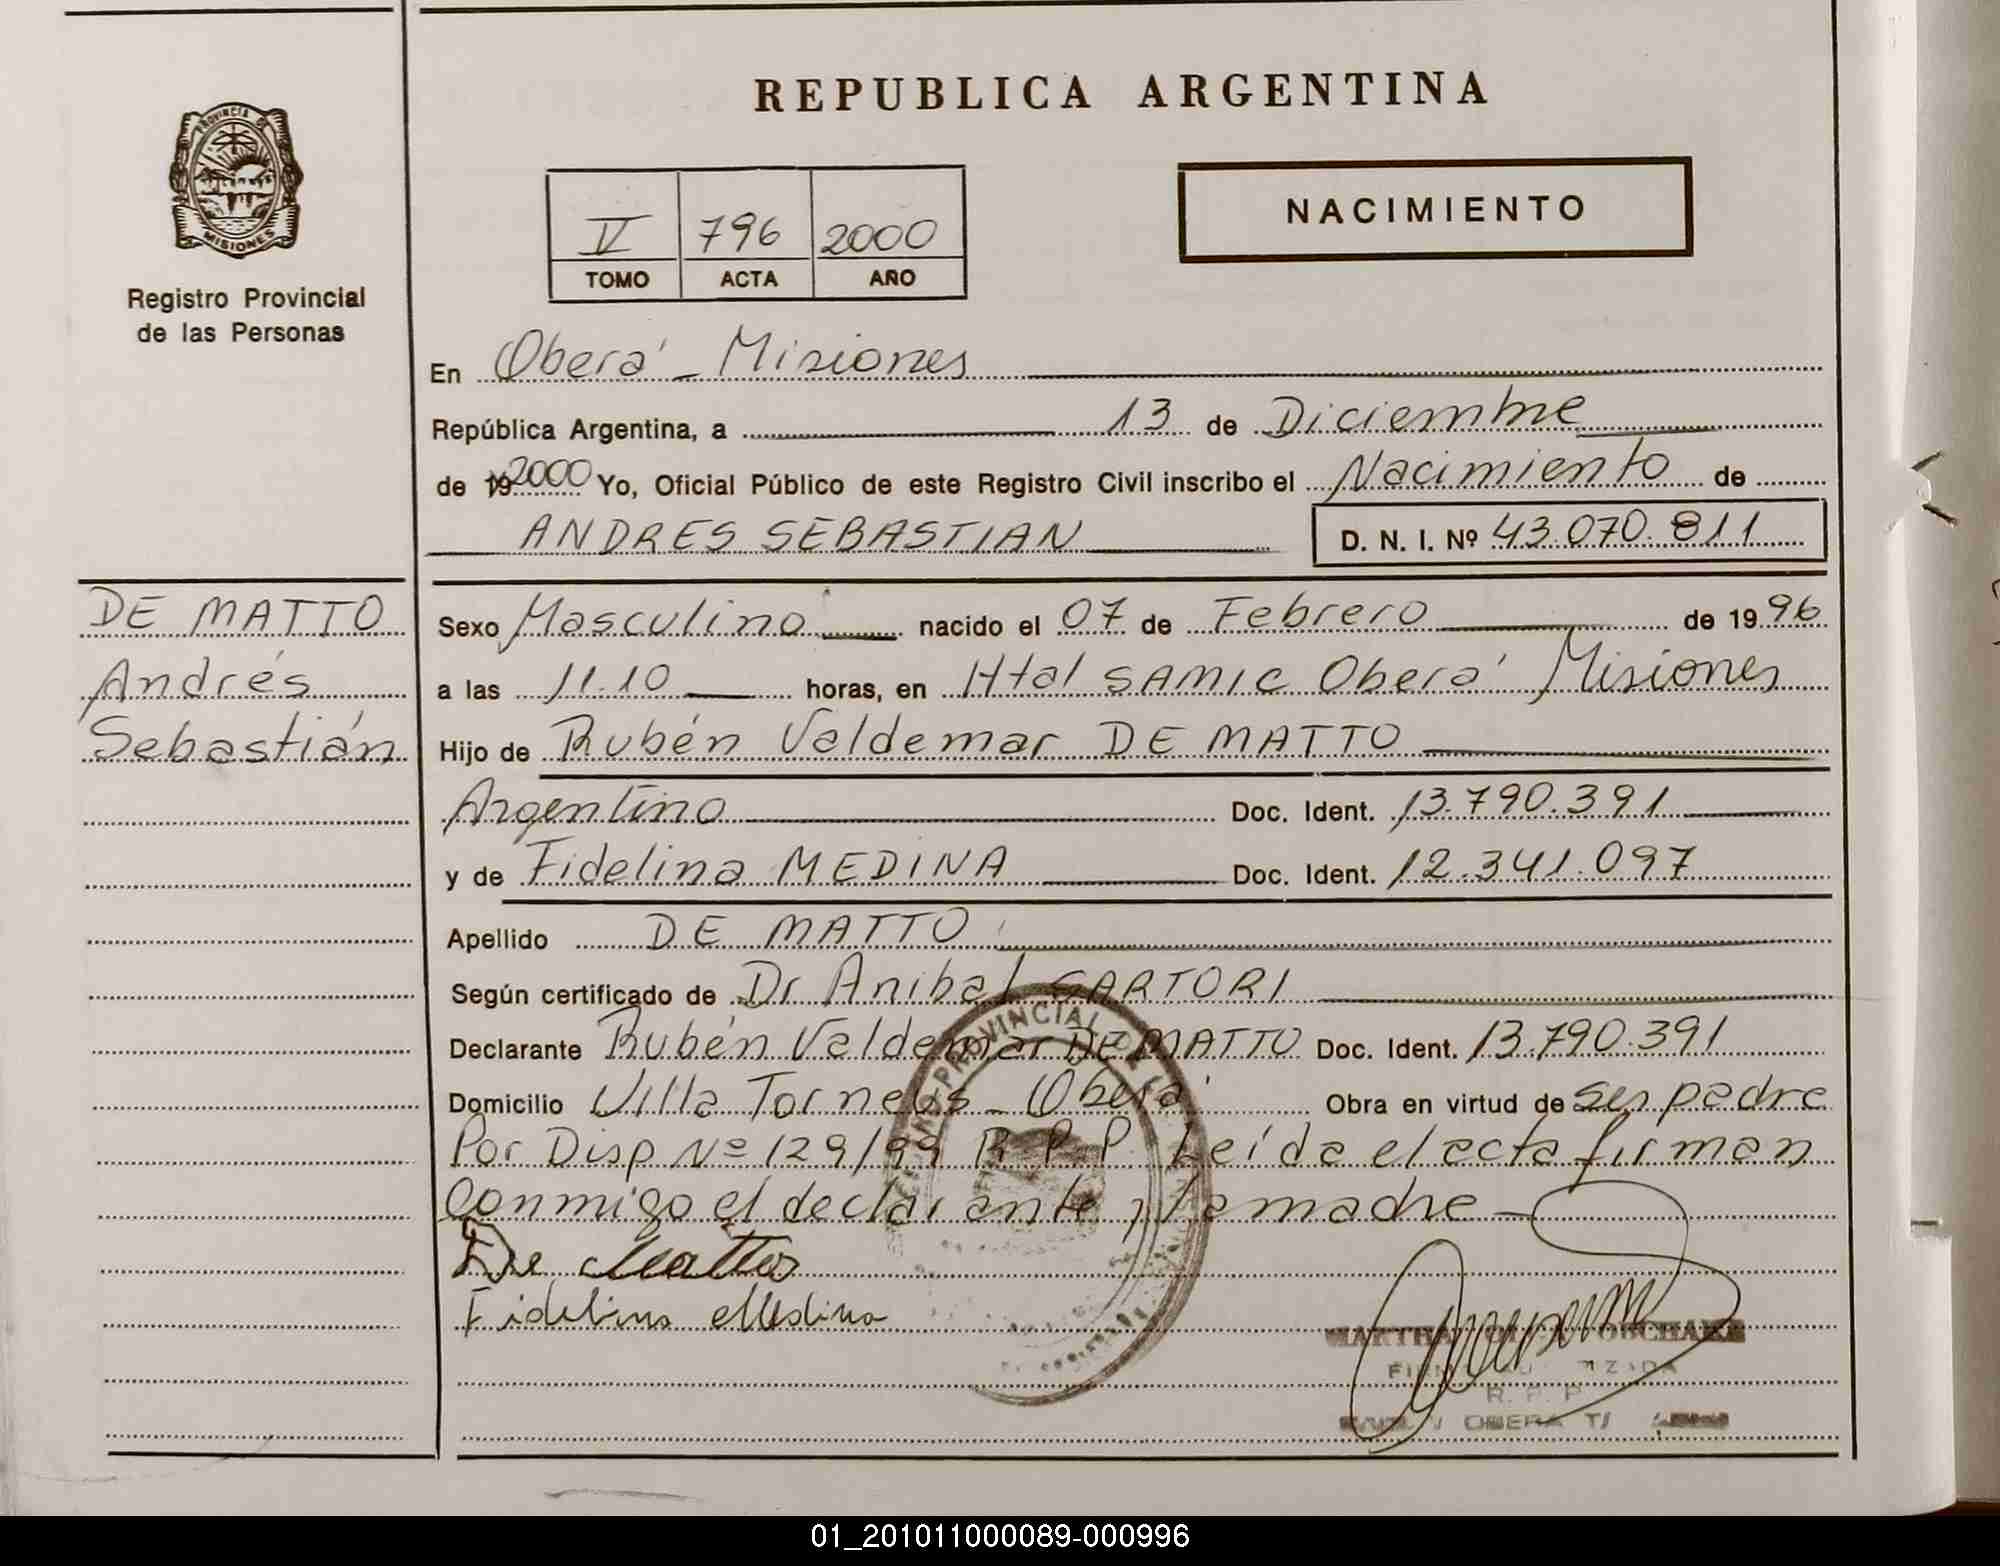 REPUBLICA ARGENTINA
PROVINCIA DE
MISIONES
Registro Provincial
de las Personas
V 796 2000
TOMO ACTA AÑO
NACIMIENTO
En Oberá - Misiones
República Argentina, a 13 de Diciembre
de 19 2000 Yo, Oficial Público de este Registro Civil inscribo el Nacimiento de
ANDRES SEBASTIAN D. N. I. Nº 43.070.811
DE MATTO
Andrés
Sebastián
Sexo Masculino nacido el 07 de Febrero de 19 96
a las 11.10 horas, en Htal SAMIC Oberá Misiones
Hijo de Rubén Valdemar DE MATTO
Argentino Doc. Ident. 13.790.391
y de Fidelina MEDINA Doc. Ident. 12.341.097
Apellido DE MATTO
Según certificado de Dr Anibal SARTORI
Declarante Rubén Valdemar DE MATTO Doc. Ident. 13.790.391
Domicilio Villa Torneus - Oberá Obra en virtud de ser padre
Por Disp Nº 129/99 R.P.P. Leída el acta firman
Conmigo el declarante y la madre
De Matto
Fidelina Medina
PROVINCIAL
R. P. P.
OBERA
01_201011000089-000996